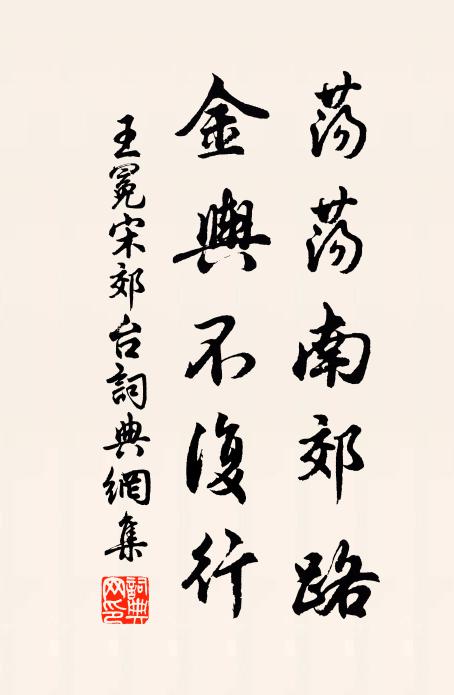 荡荡南郊路
金輿不復行
王冕宋郊台詞典網集
詞典網印